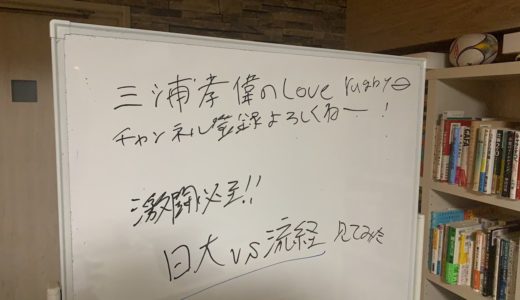 三浦孝偉のLove rugby
チャンネル登録よろしくねー!
激闘必至!!
日大vs流経 見てみた
GAFA